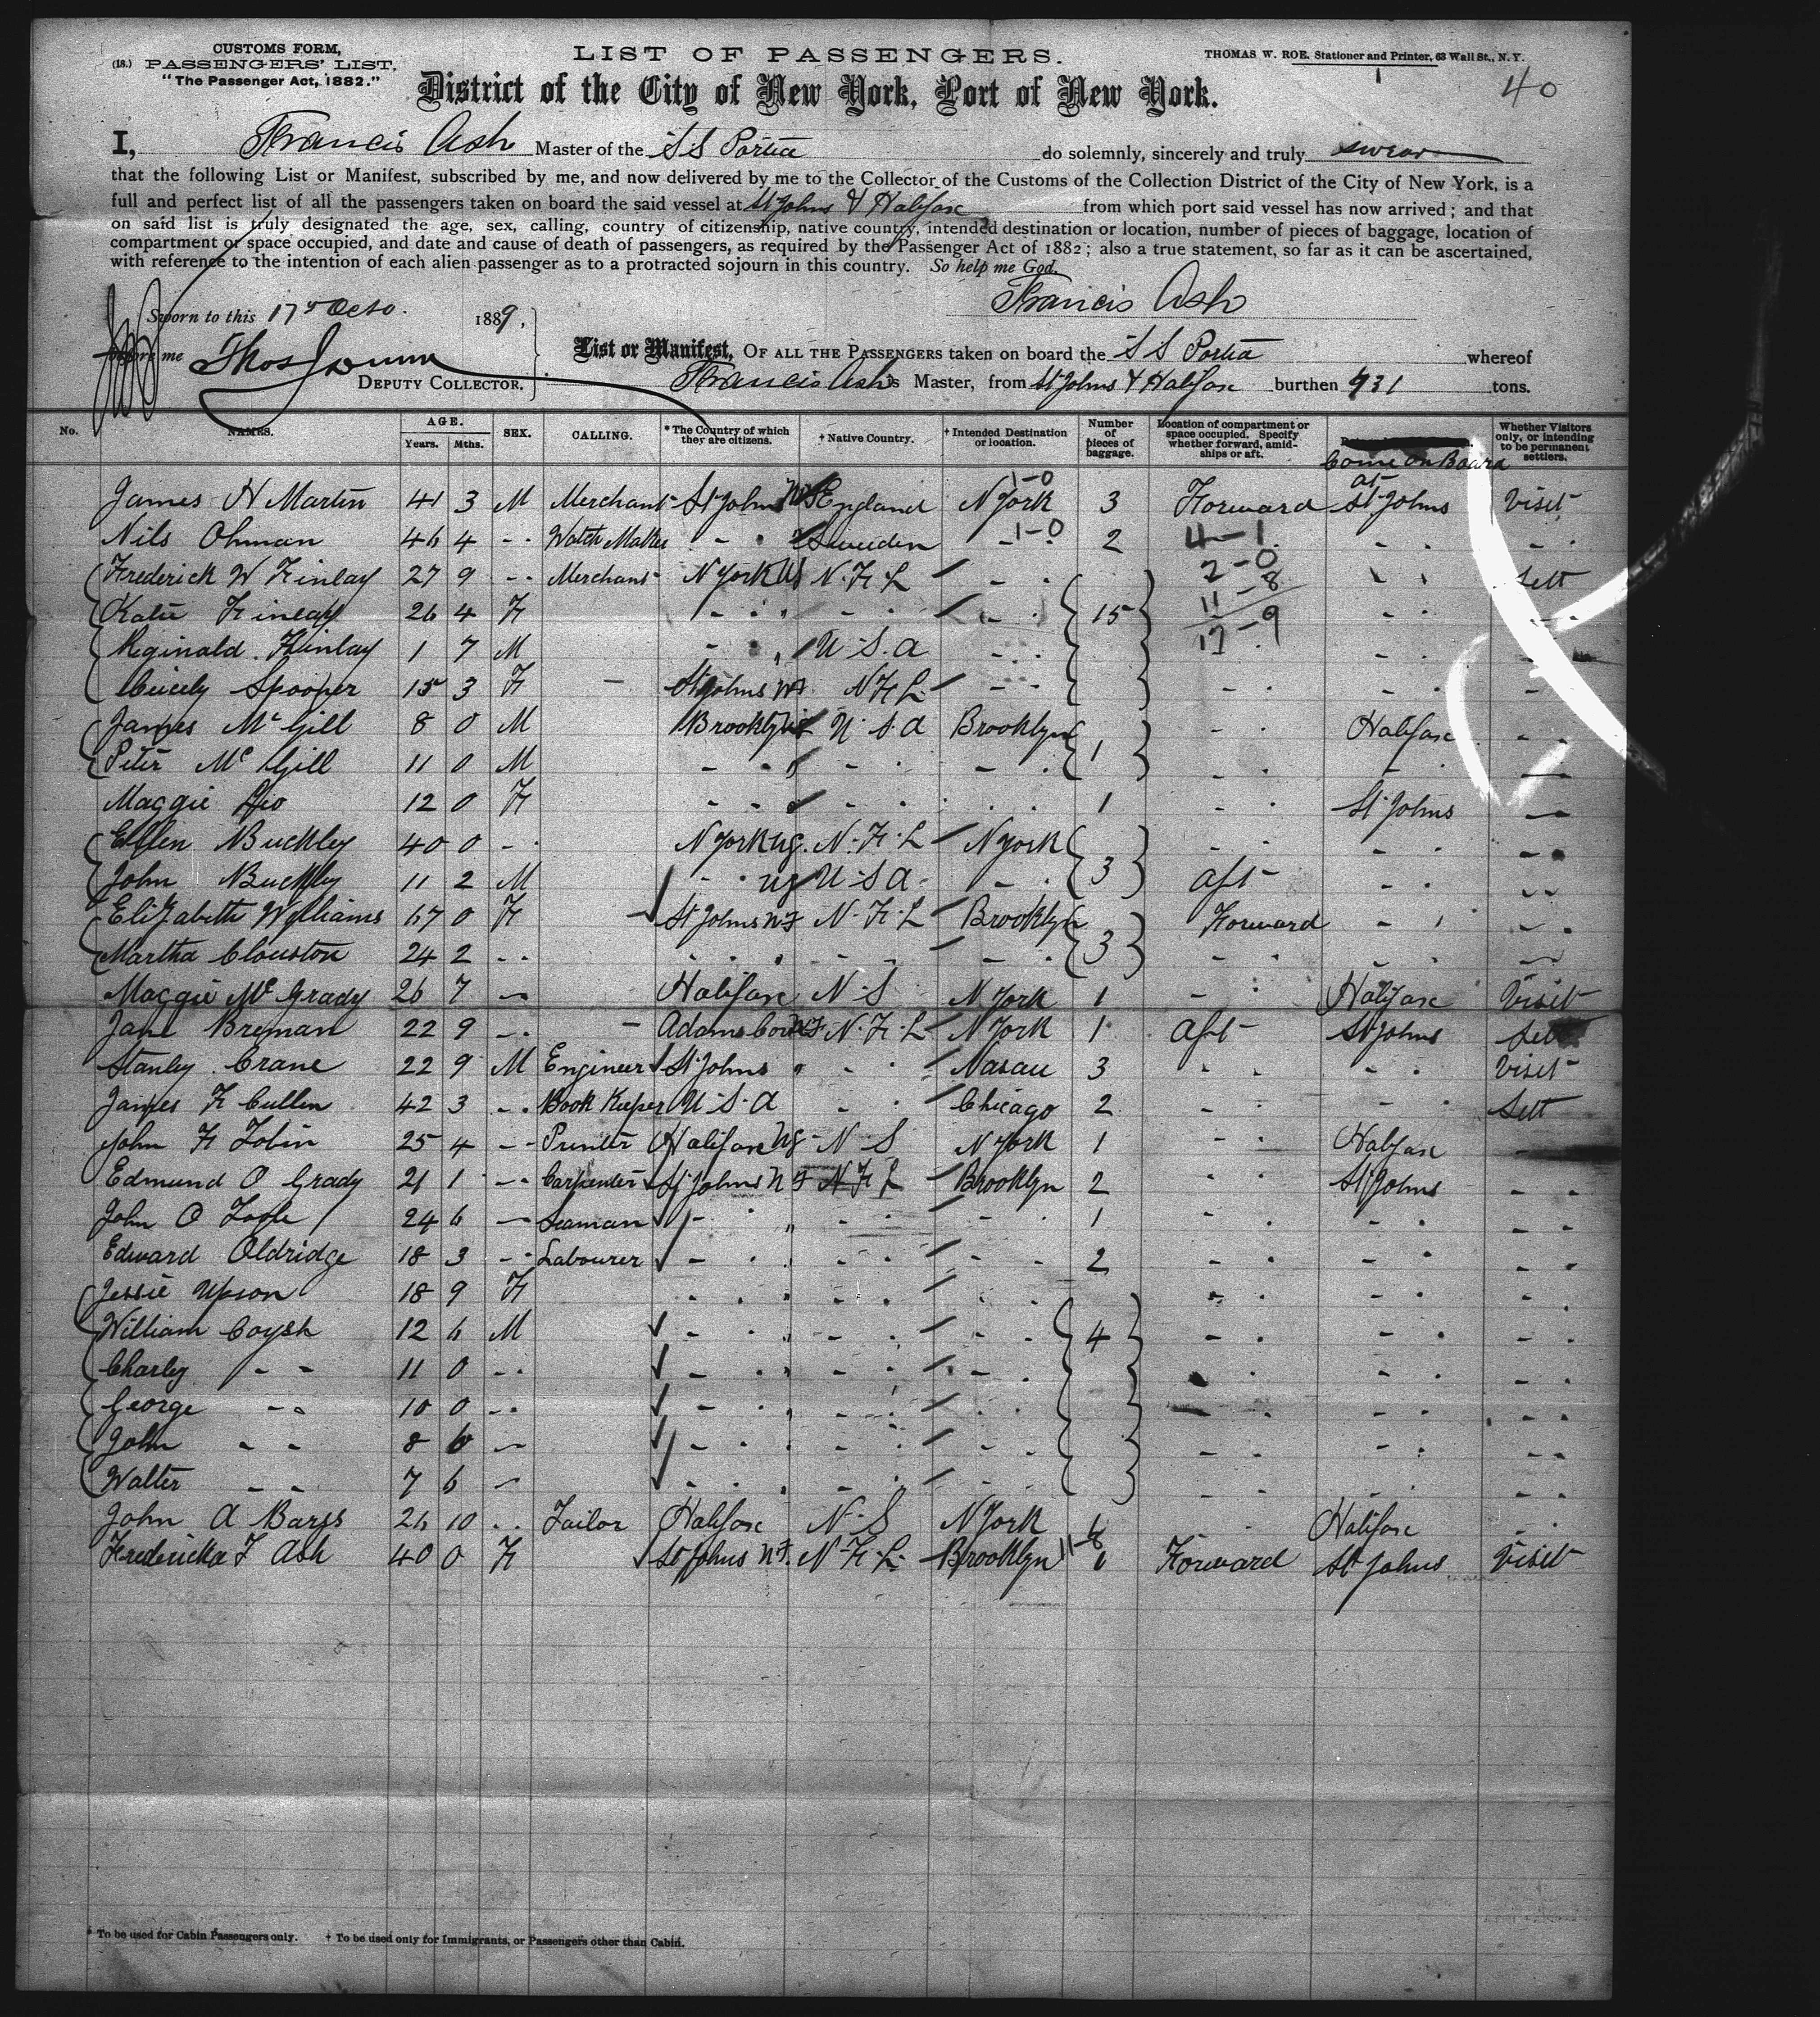 CUSTOMS FORM,
(18.) PASSENGERS' LIST.
"The Passenger Act, 1882."
LIST OF PASSENGERS.
THOMAS W. ROE, Stationer and Printer, 63 Wall St., N.Y.
1
40
District of the City of New York, Port of New York.
I, Francis Ash Master of the S S Portia do solemnly, sincerely and truly swear
that the following List or Manifest, subscribed by me, and now delivered by me to the Collector of the Customs of the Collection District of the City of New York, is a
full and perfect list of all the passengers taken on board the said vessel at St Johns & Halifax from which port said vessel has now arrived; and that
on said list is truly designated the age, sex, calling, country of citizenship, native country, intended destination or location, number of pieces of baggage, location of
compartment or space occupied, and date and cause of death of passengers, as required by the Passenger Act of 1882; also a true statement, so far as it can be ascertained,
with reference to the intention of each alien passenger as to a protracted sojourn in this country. So help me God.
Francis Ash
Sworn to this 17th Octo. 1889,
before me
DEPUTY COLLECTOR.
List or Manifest, OF ALL THE PASSENGERS taken on board the S S Portia whereof
Francis Ash is Master, from St Johns & Halifax burthen 931 tons.
No. NAMES. AGE. Years. Mths. SEX. CALLING. * The Country of which they are citizens. † Native Country. † Intended Destination or location. Number of pieces of baggage. Location of compartment or space occupied. Specify whether forward, amidships or aft. Come on Board at Whether Visitors only, or intending to be permanent settlers.
James H Martin 41 3 M Merchant St Johns NF England 1-0 N York 3 Forward St Johns Visit
Nils Ohman 46 4 - - Watch Maker - - Sweden 1-0 - - 2 4-1 - - - -
Frederick W Finlay 27 9 - - Merchant N York US N. F. L - - 2-0 - - Sett
Katie Finlay 26 4 F - - - - - - 15 11-8 - - - -
Reginald Finlay 1 7 M - - U S. A - - 17-9 - - - -
Cicely Spooner 15 3 F - St Johns NF N F L - - - - - - - -
James Mc Gill 8 0 M Brooklyn US U. S. A Brooklyn - - Halifax - -
Peter Mc Gill 11 0 M - - - - - - 1 - - - - - -
Maggie 12 0 F - - - - - - 1 - - St Johns - -
Ellen Buckley 40 0 - - N York US. N. F. L N York - - - - - -
John Buckley 11 2 M - - US U. S. A - - 3 Aft - - - -
Elizabeth Williams 67 0 F - St Johns NF N. F. L Brooklyn Forward - - - -
Martha Clouston 24 2 - - - - - - - - 3 - - - - - -
Maggie Mc Grady 26 7 - - Halifax N. S N York 1 - - Halifax Visit
Jane Brennan 22 9 - - - Adams Cove NF N. F. L N York 1 Aft St Johns Sett
Stanley Crane 22 9 M Engineer St Johns " - - Nasau 3 - - - - Visit
James F Cullen 42 3 - - Book Keeper U S A - - Chicago 2 - - - - Sett
John F Tobin 25 4 - - Printer Halifax NS N S N York 1 - - Halifax
Edmund O Grady 21 1 - - Carpenter St Johns N F N F L Brooklyn 2 St Johns - -
John O Toole 24 6 - - Seaman - - " - - - - 1 - - - - - -
Edward Oldridge 18 3 - - Labourer - - - - - - 2 - - - - - -
Jessie Upson 18 9 F - - - - - - - - - - - -
William Coysh 12 6 M - - - - - - 4 - - - - - -
Charley - - 11 0 - - - - - - - - - - - - - -
George - - 10 0 - - - - - - - - - - - - - -
John - - 8 6 - - - - - - - - - - - - - -
Walter - - 7 6 - - - - - - - - - - - - - -
John A Barss 26 10 - - Tailor Halifax N. S N York 1 - Halifax - -
Fredericka F Ash 40 0 F St Johns NF. N. F. L. Brooklyn 11-8 1 Forward St Johns Visit
* To be used for Cabin Passengers only. † To be used only for Immigrants, or Passengers other than Cabin.